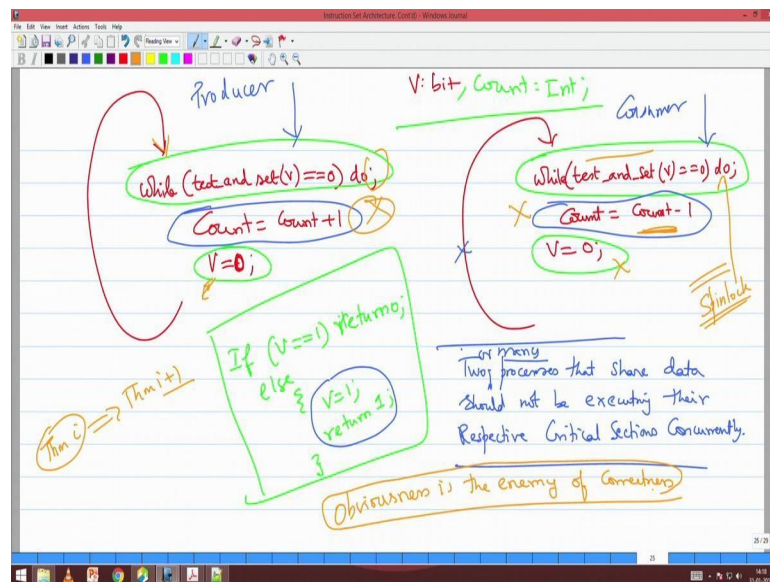 Instruction Set Architecture, Cont'd) - Windows Journal
File Edit View Insert Actions Tools Help
Reading View
B I
Producer
V: bit, Count: Int;
Consumer
while (test_and_set(v)==0) do;
Count = Count+1
V=0;
while(test_and_set(v)==0) do;
Count = Count-1
V=0;
Spinlock
If (V==1) return 0;
else
{ V=1;
return 1;
}
Thm i => Thm i+1
or many
Two processes that share data
should not be executing their
Respective Critical Sections Concurrently.
Obviousness is the enemy of Correctness
25/29
25
14:18